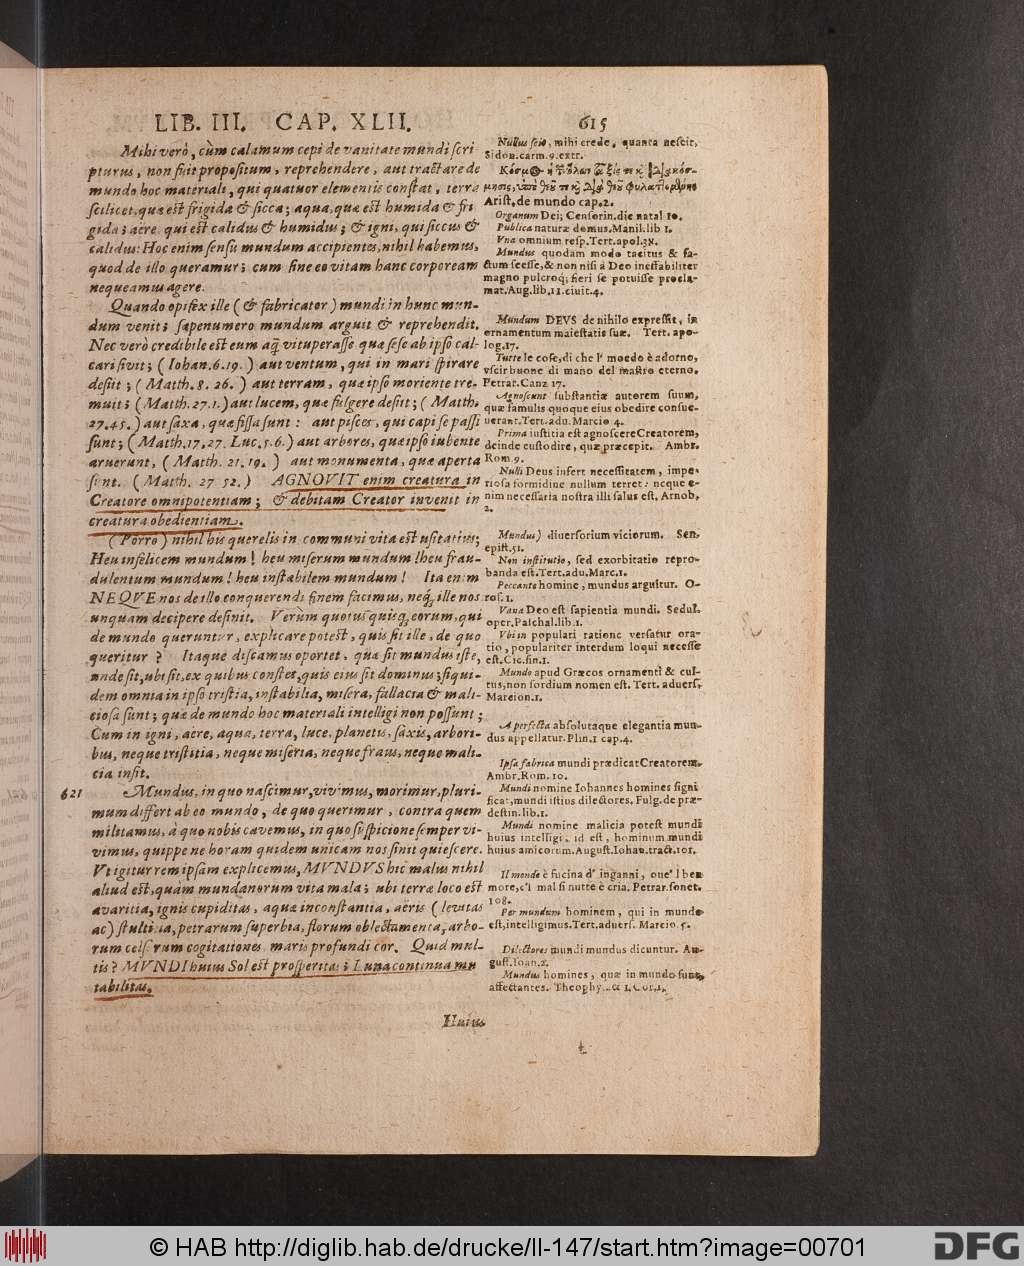 LIB. III. CAP. XLII. 615
Mihi verò, cùm calamum cepi de vanitate mundi scri
pturus, non fuit propositum, reprehendere, aut tractare de
mundo hoc materiali, qui quatuor elementis constat, terra
scilicet, quæ est frigida & sicca; aqua, quæ est humida & fri
gida; aëre, qui est calidus & humidus; & igni, qui siccus &
calidus: Hoc enim sensu mundum accipientes, nihil habemus,
quod de illo queramur; cum sine eo vitam hanc corpoream
nequeamus agere.
Quando opifex ille (& fabricator) mundi in hunc mun-
dum venit; sæpenumero mundum arguit & reprehendit.
Nec verò credibile est eum aq̃ vituperasse quæ sese ab ipso cal-
cari sivit; (Iohan. 6. 19.) aut ventum, qui in mari spirare
desiit; (Matth. 8. 26.) aut terram, quæ ipso moriente tre-
muit; (Matth. 27. 1.) aut lucem, quæ fulgere desiit; (Matth.
27. 45.) aut saxa, quæ fissa sunt: aut pisces, qui capi se passi
sunt; (Matth. 17. 27. Luc. 5. 6.) aut arbores, quæ ipso iubente
aruerunt, (Matth. 21. 19.) aut monumenta, quæ aperta
sunt. (Matth. 27 52.) AGNOVIT enim creatura in
Creatore omnipotentiam; & debitam Creator invenit in
creatura obedientiam.
(Porrò) nihil his querelis in communi vita est usitatius;
Heu infelicem mundum! heu miserum mundum! heu frau-
dulentum mundum! heu instabilem mundum! Ita enim
NEQVE nos de illo conquerendi finem facimus, neq; ille nos
unquam decipere definit. Verùm quotusquisq; eorum, qui
de mundo queruntur, explicare potest, quis sit ille, de quo
queritur? Itaque discamus oportet, quæ sit mundus iste,
unde sit, ubi sit, ex quibus constet, quis eius sit dominus; siqui-
dem omnia in ipso tristia, instabilia, misera, fallacia & mali-
ciosa sunt; quæ de mundo hoc materiali intelligi non possunt;
Cum in igni, aëre, aqua, terra, luce, planetis, saxis, arbori-
bus, neque tristitia, neque miseria, neque fraus, neque mali-
cia insit.
621 Mundus, in quo nascimur, vivimus, morimur, pluri-
mum differt ab eo mundo, de quo querimur, contra quem
militamus, à quo nobis cavemus, in quo suspicione semper vi-
vimus, quippe ne horam quidem unicam nos sinit quiescere.
Vt igitur rem ipsam explicemus, MVNDVS hic malus nihil
aliud est, quàm mundanorum vita mala; ubi terræ loco est
avaritia, ignis cupiditas, aquæ inconstantia, aëris (levitas
ac) stultitia, petrarum superbia, florum oblectamenta, arbo-
rum celsarum cogitationes, maris profundi cor. Quid mul-
tis? MVNDI huius Sol est prosperitas; Luna continua mu
tabilitas.
Huius
Nullus scio, mihi crede, quanta nescit,
Sidon. carm. 9. extr.
Arist. de mundo cap. 2.
Organum Dei; Censorin. die natal 10.
Publica naturæ domus. Manil. lib 1.
Vna omnium resp. Tert. apol. 38.
Mundus quodam modo tacitus & fa-
ctum se esse, & non nisi à Deo ineffabiliter
magno pulcroq; fieri se potuisse procla-
mat. Aug. lib. 11. ciuit. 4.
Mundum DEVS de nihilo expressit, in
ornamentum maiestatis suæ. Tert. apo-
log. 17.
Tutte le cose, di che l' moedo è adorno,
vscir buone di mano del mastro eterno.
Petrar. Canz 17.
Agnoscunt substantiæ autorem suum,
quæ famulis quoque eius obedire consue-
uerant. Tert. adu. Marcio 4.
Prima iustitia est agnoscere Creatorem,
deinde custodire, quæ præcepit. Ambr.
Rom. 9.
Nulli Deus infert necessitatem, impe-
riosa formidine nullum terret: neque e-
nim necessaria nostra illi salus est. Arnob.
2.
Mundus) diuersorium viciorum. Sen.
epist. 51.
Non institutio, sed exorbitatio repro-
banda est. Tert. adu. Marc. 1.
Peccante homine, mundus arguitur. O-
ros. 1.
Vana Deo est sapientia mundi. Sedul.
oper. Paschal. lib. 1.
Vbi in populari ratione versatur ora-
tio, populariter interdum loqui necesse
est. Cic. fin. 1.
Mundo apud Græcos ornamenti & cul-
tus, non sordium nomen est. Tert. aduers.
Marcion. 1.
A perfecta absolutaque elegantia mun-
dus appellatur. Plin. 1 cap. 4.
Ipsa fabrica mundi prædicat Creatorem.
Ambr. Rom. 10.
Mundi nomine Iohannes homines signi
ficat, mundi istius dilectores. Fulg. de præ-
destin. lib. 1.
Mundi nomine malicia potest mundi
huius intelligi, id est, hominum mundi
huius amicorum. August. Iohan. tract. 101.
Il mondo è fucina d' inganni, oue' l ben
more, e'l mal si nutre è cria. Petrar. sonet.
108.
Per mundum hominem, qui in mundo
est, intelligimus. Tert. aduers. Marcio. 5.
Dilectores mundi mundus dicuntur. Au-
gust. Ioan. 2.
Mundus homines, quæ in mundo sunt,
affectantes. Theophylact 1. Cor. 1.
© HAB http://diglib.hab.de/drucke/ll-147/start.htm?image=00701
DFG